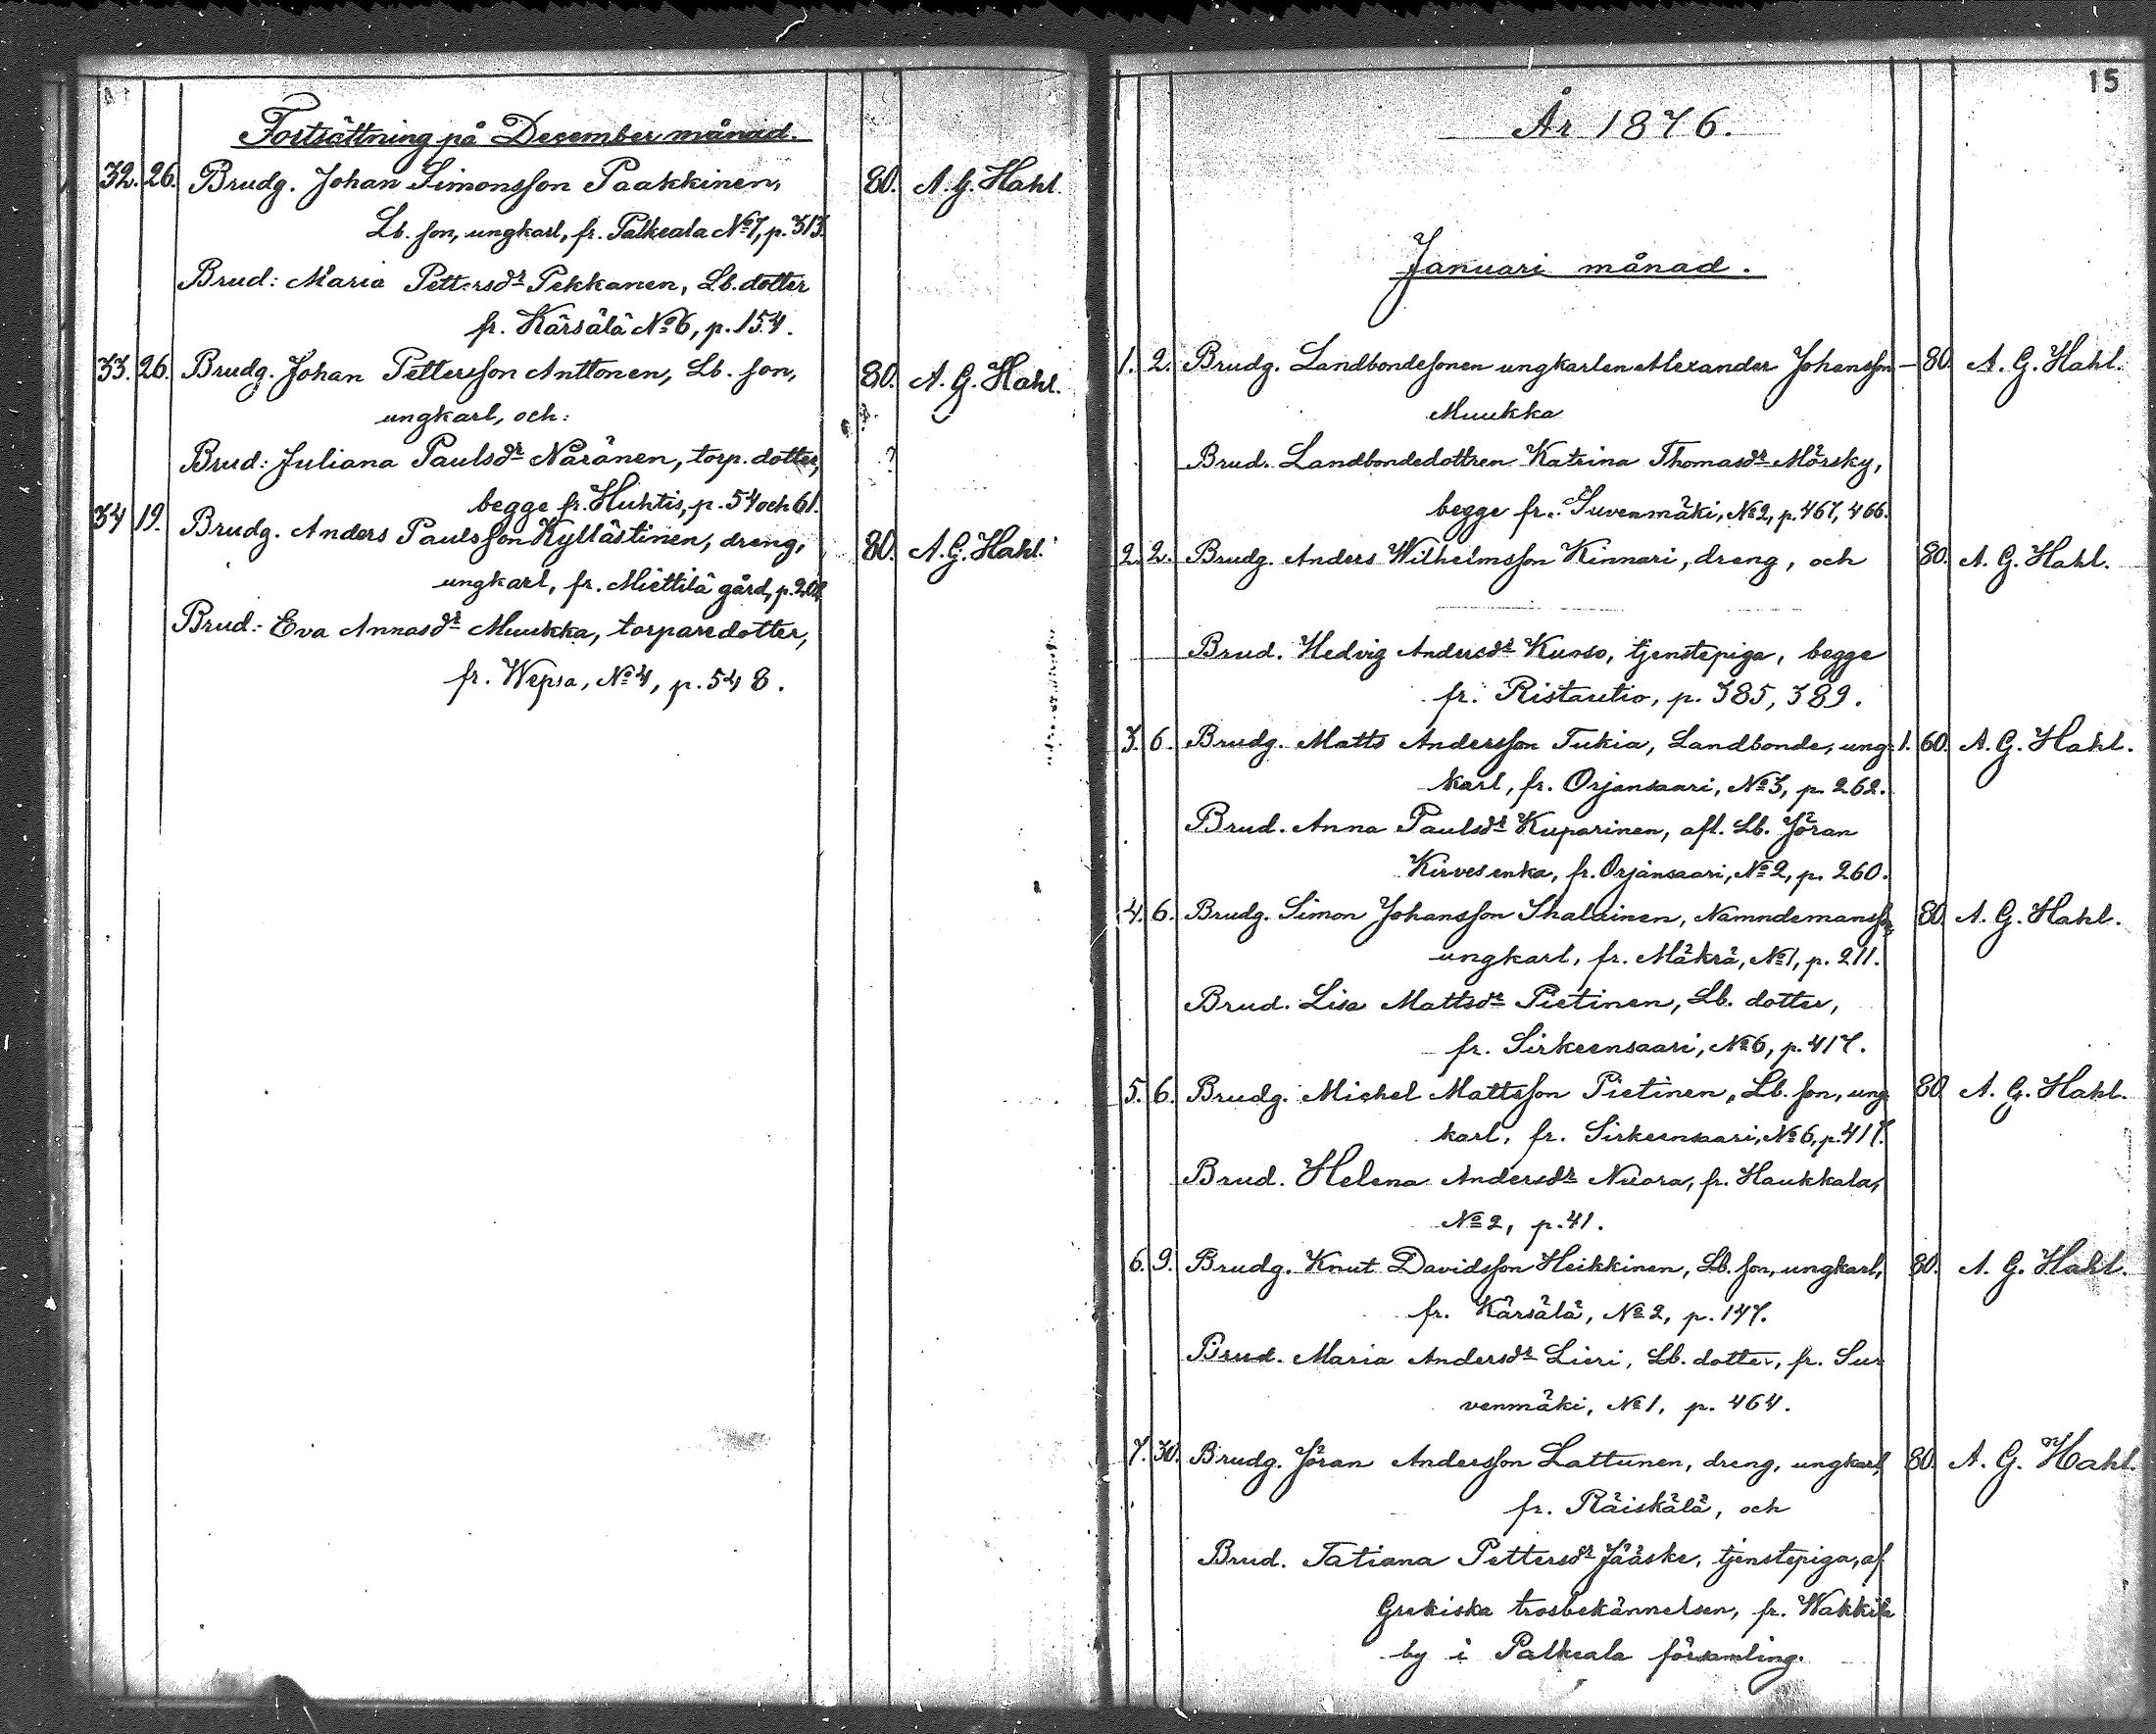 Fortsättning på December månad.
32. 26. Brudg. Johan Simonsson Paakkinen, 80. A. G. Hahl.
Lb. son, ungkarl, fr. Palkeala No 7, p. 313.
Brud: Maria Pettersdr Pekkanen, Lb. dotter
fr. Kärsälä No 6, p. 154.
33. 26. Brudg. Johan Pettersson Anttonen, Lb. son, 80. A. G. Hahl.
ungkarl, och:
Brud: Juliana Paulsdr Näränen, torp. dotter,
begge fr. Huhtis, p. 54 och 61.
34 19. Brudg. Anders Paulsson Kyllästinen, dreng, 80. A. G. Hahl.
ungkarl, fr. Miettilä gård, p.
Brud: Eva Annasdr Muukka, torparedotter,
fr. Wepsa, No 4, p. 548.
15
År 1876.
Januari månad.
1. 2. Brudg. Landbondesonen ungkarlen Alexander Johansson — 80. A. G. Hahl.
Muukka
Brud. Landbondedottren Katrina Thomasdr Mörsky,
begge fr. Suvenmäki, No 2, p. 467, 466.
2. 2. Brudg. Anders Wilhelmsson Kinnari, dreng, och 80. A. G. Hahl.
Brud. Hedvig Andersdr Kunso, tjenstepiga, begge
fr. Ristautio, p. 385, 389.
3. 6. Brudg. Matts Andersson Tukia, Landbonde, ung- 1. 60. A. G. Hahl.
karl, fr. Orjansaari, No 3, p. 262.
Brud. Anna Paulsdr Kuparinen, afl. Lb. Jöran
Kirves enka, fr. Orjansaari, No 2, p. 260.
4. 6. Brudg. Simon Johansson Ihalainen, Nämndemansson, 80. A. G. Hahl.
ungkarl, fr. Mäkrä, No 1, p. 211.
Brud. Lisa Mattsdr Pietinen, Lb. dotter,
fr. Sirkeensaari, No 6, p. 417.
5. 6. Brudg. Michel Mattsson Pietinen, Lb. son, ung- 80 A. G. Hahl.
karl, fr. Sirkeensaari, No 6, p. 417.
Brud. Helena Andersdr Nuora, fr. Haukkala,
No 2, p. 41.
6. 9. Brudg. Knut Davidsson Heikkinen, Lb. son, ungkarl, 80. A. G. Hahl.
fr. Kärsälä, No 2, p. 147.
Brud. Maria Andersdr Lieri, Lb. dotter, fr. Su-
venmäki, No 1, p. 464.
7. 30. Brudg. Jöran Andersson Lattunen, dreng, ungkarl, 80. A. G. Hahl.
fr. Räiskälä, och
Brud. Tatiana Pettersdr Jääske, tjenstepiga, af
Grekiska trosbekännelsen, fr.
by i Palkeala församling.